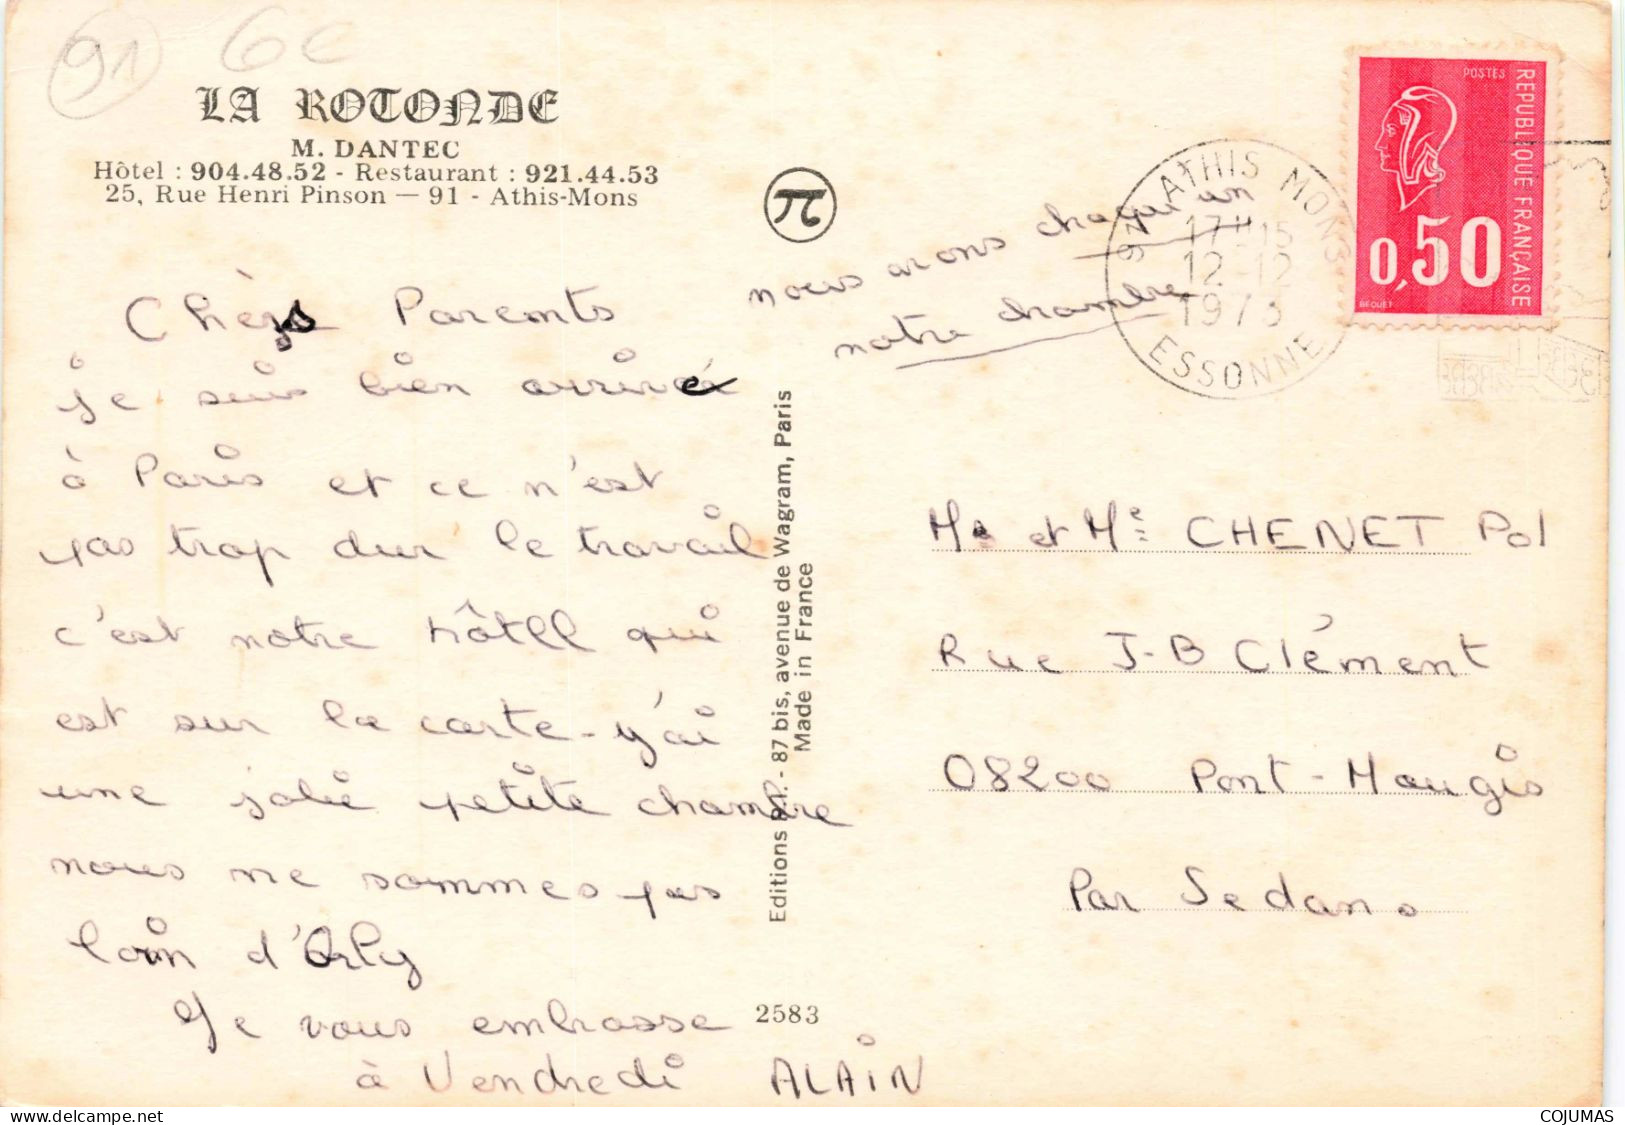 91
6€
LA ROTONDE
M. DANTEC
Hôtel : 904.48.52 - Restaurant : 921.44.53
25, Rue Henri Pinson — 91 - Athis-Mons
Chèrs Parents
je suis bien arrivé
à Paris et ce n'est
pas trop dur le travail
c'est notre hôtell qui
est sur la carte - j'ai
une jolie petite chambre
nous ne sommes pas
loin d'Orly
Je vous embrasse
à Vendredi ALAIN
nous avons chaqu'un
notre chambre
Editions P.I. - 87 bis, avenue de Wagram, Paris
Made in France
2583
91 ATHIS MONS
17H15
12-12
1973
ESSONNE
POSTES
REPUBLIQUE FRANÇAISE
0,50
BEQUET
Mr et Me CHENET Pol
Rue J-B Clément
08200 Pont-Maugis
Par Sedan.
COJUMAS